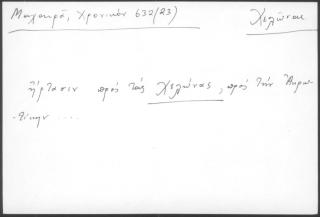 Μαχαιρᾶ, Χρονικόν 632 (23) Χελώνας
ἤρτασιν πρὸς τὰς Χελώνας, πρὸς τὴν Ἀκρω-
-τίκην ....